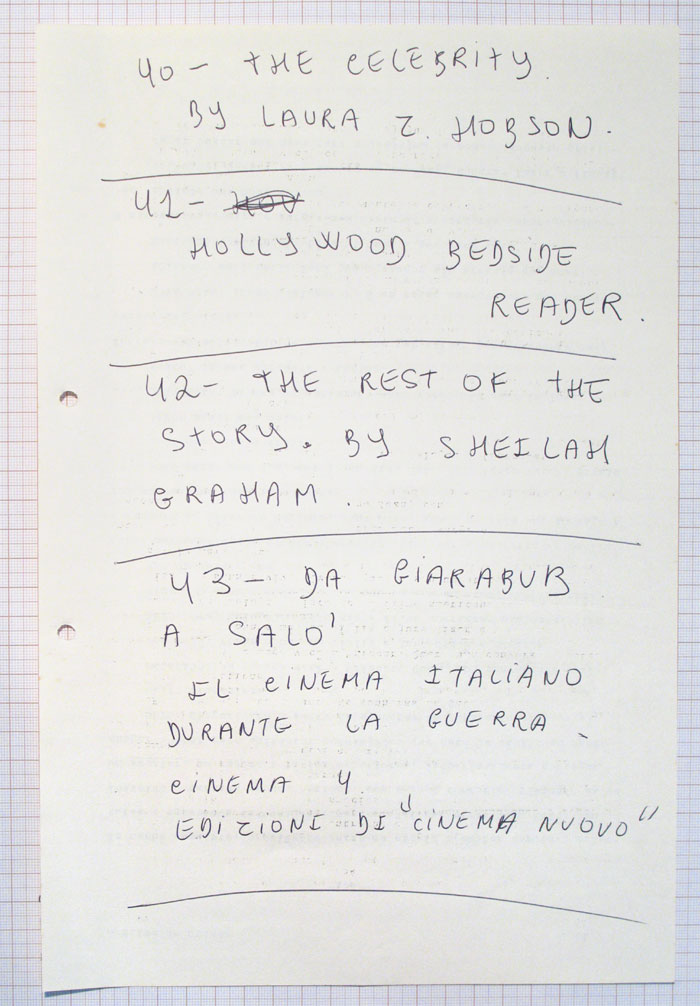 40 - THE CELEBRITY.
BY LAURA Z. HOBSON.
41 -
HOLLYWOOD BEDSIDE
READER.
42 - THE REST OF THE
STORY. BY SHEILAH
GRAHAM.
43 - DA GIARABUB
A SALO'
IL CINEMA ITALIANO
DURANTE LA GUERRA
CINEMA 4
EDIZIONI DI "CINEMA NUOVO"